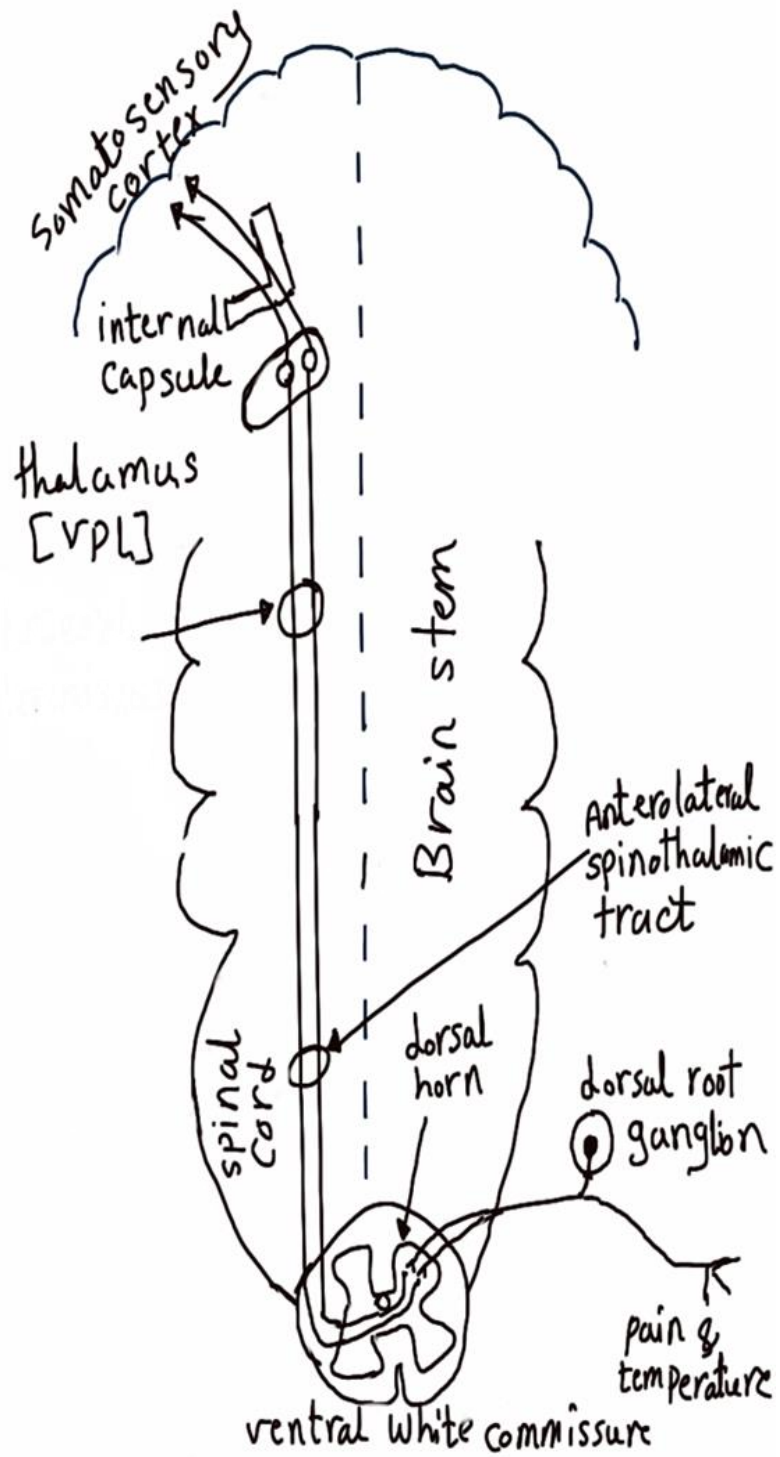 somatosensory
cortex
internal
capsule
thalamus
[VPL]
Brain stem
Anterolateral
spinothalamic
tract
dorsal
horn
spinal
cord
dorsal root
ganglion
pain &
temperature
ventral white commissure